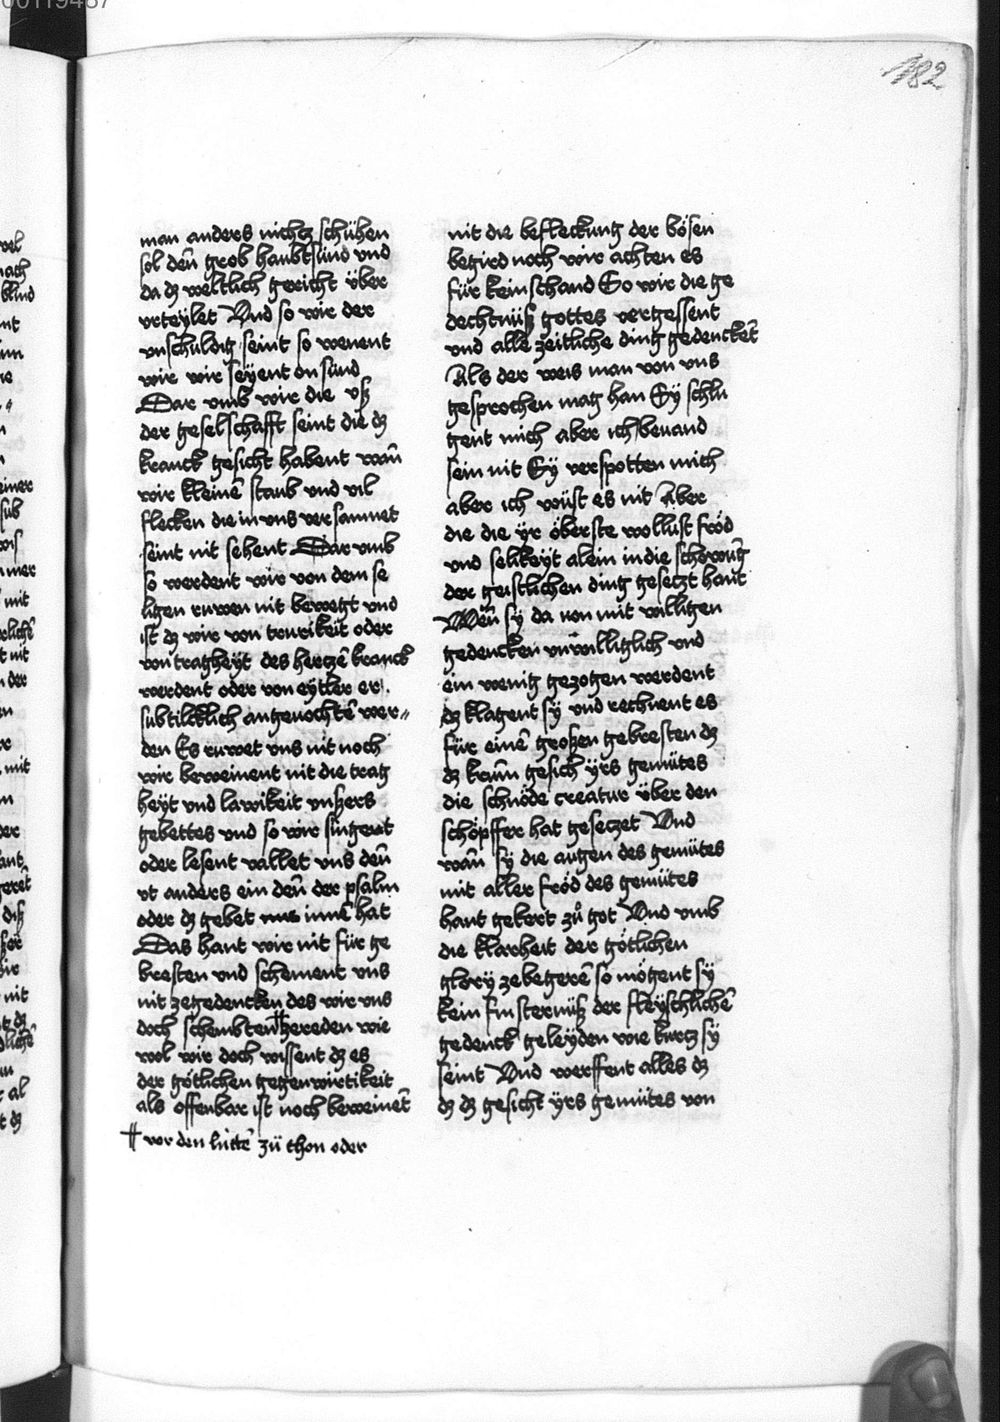 182
man anders nichtz schühen
sol deñ grob haubtsünd vnd
da dz weltlich gericht über
vrteylet Vnd so wir der
vnschuldig seint so wenent
wir wir seyent on sünd
Dar vmb wir die vß
der geselschafft seint die dz
kranck gesicht habent wañ
wir kleinē staub vnd vil
flecken die in vns versamnet
seint nit sehent Dar vmb
so werdent wir von dem se
ligen ruwen nit bewegt vnd
ist dz wir von trurikeit oder
von tragheyt des hertzē kranck
werdent oder von eytler er
subtilcklich angenochtē wer〃
den Es ruwet vns nit noch
wir beweinent nit die trag
heyt vnd lawikeit vnßers
gebettes vnd so wir singent
oder lesent vallet vns deñ
vt anders ein deñ der psalm
oder dz gebet innē hat
Das hant wir nit für ge
bresten vnd schement vns
nit zegedencken des wir vns
doch schembten ‡ zereden wie
wol wir doch wissent dz es
der götlichen gegenwirtikeit
als offenbar ist noch beweinēt
‡ vor den lüttē zü thon oder
nit die befleckung der bösen
begird noch wir achten es
für kein schand So wir die ge
dechtnüß gottes vergessent
vnd alle zeitliche ding gedenckēt
Als der weis man von vns
gesprochen mag han Sy schlu
gent mich aber ich bevand
sein nit Sÿ verspotten mich
aber ich wüst es nit Aber
die die ÿr öberste wollust fröd
vnd selikeyt alein in die schowūg
der geistlichen ding gesetzt hant
Weñ sy da von mit willigen
gedencken vnwilliglich vnd
ein wenig gezogen werdent
dz klagent sÿ vnd rechnent es
für einē großen gebresten dz
dz krum̄ gesich ÿrs gemütes
die schnöde creatur über den
schöpffer hat gesetzet Vnd
wañ sÿ die augen des gemütes
mit aller fröd des gemütes
hant gekert zů got Vnd vmb
die klarheit der götlichen
glory zebegerē so mögent sÿ
kein finsternüß der fleyschlichē
gedenck geleyden wie kurtz sÿ
seint Vnd werffent alles dz
dz dz gesicht ÿrs gemütes von